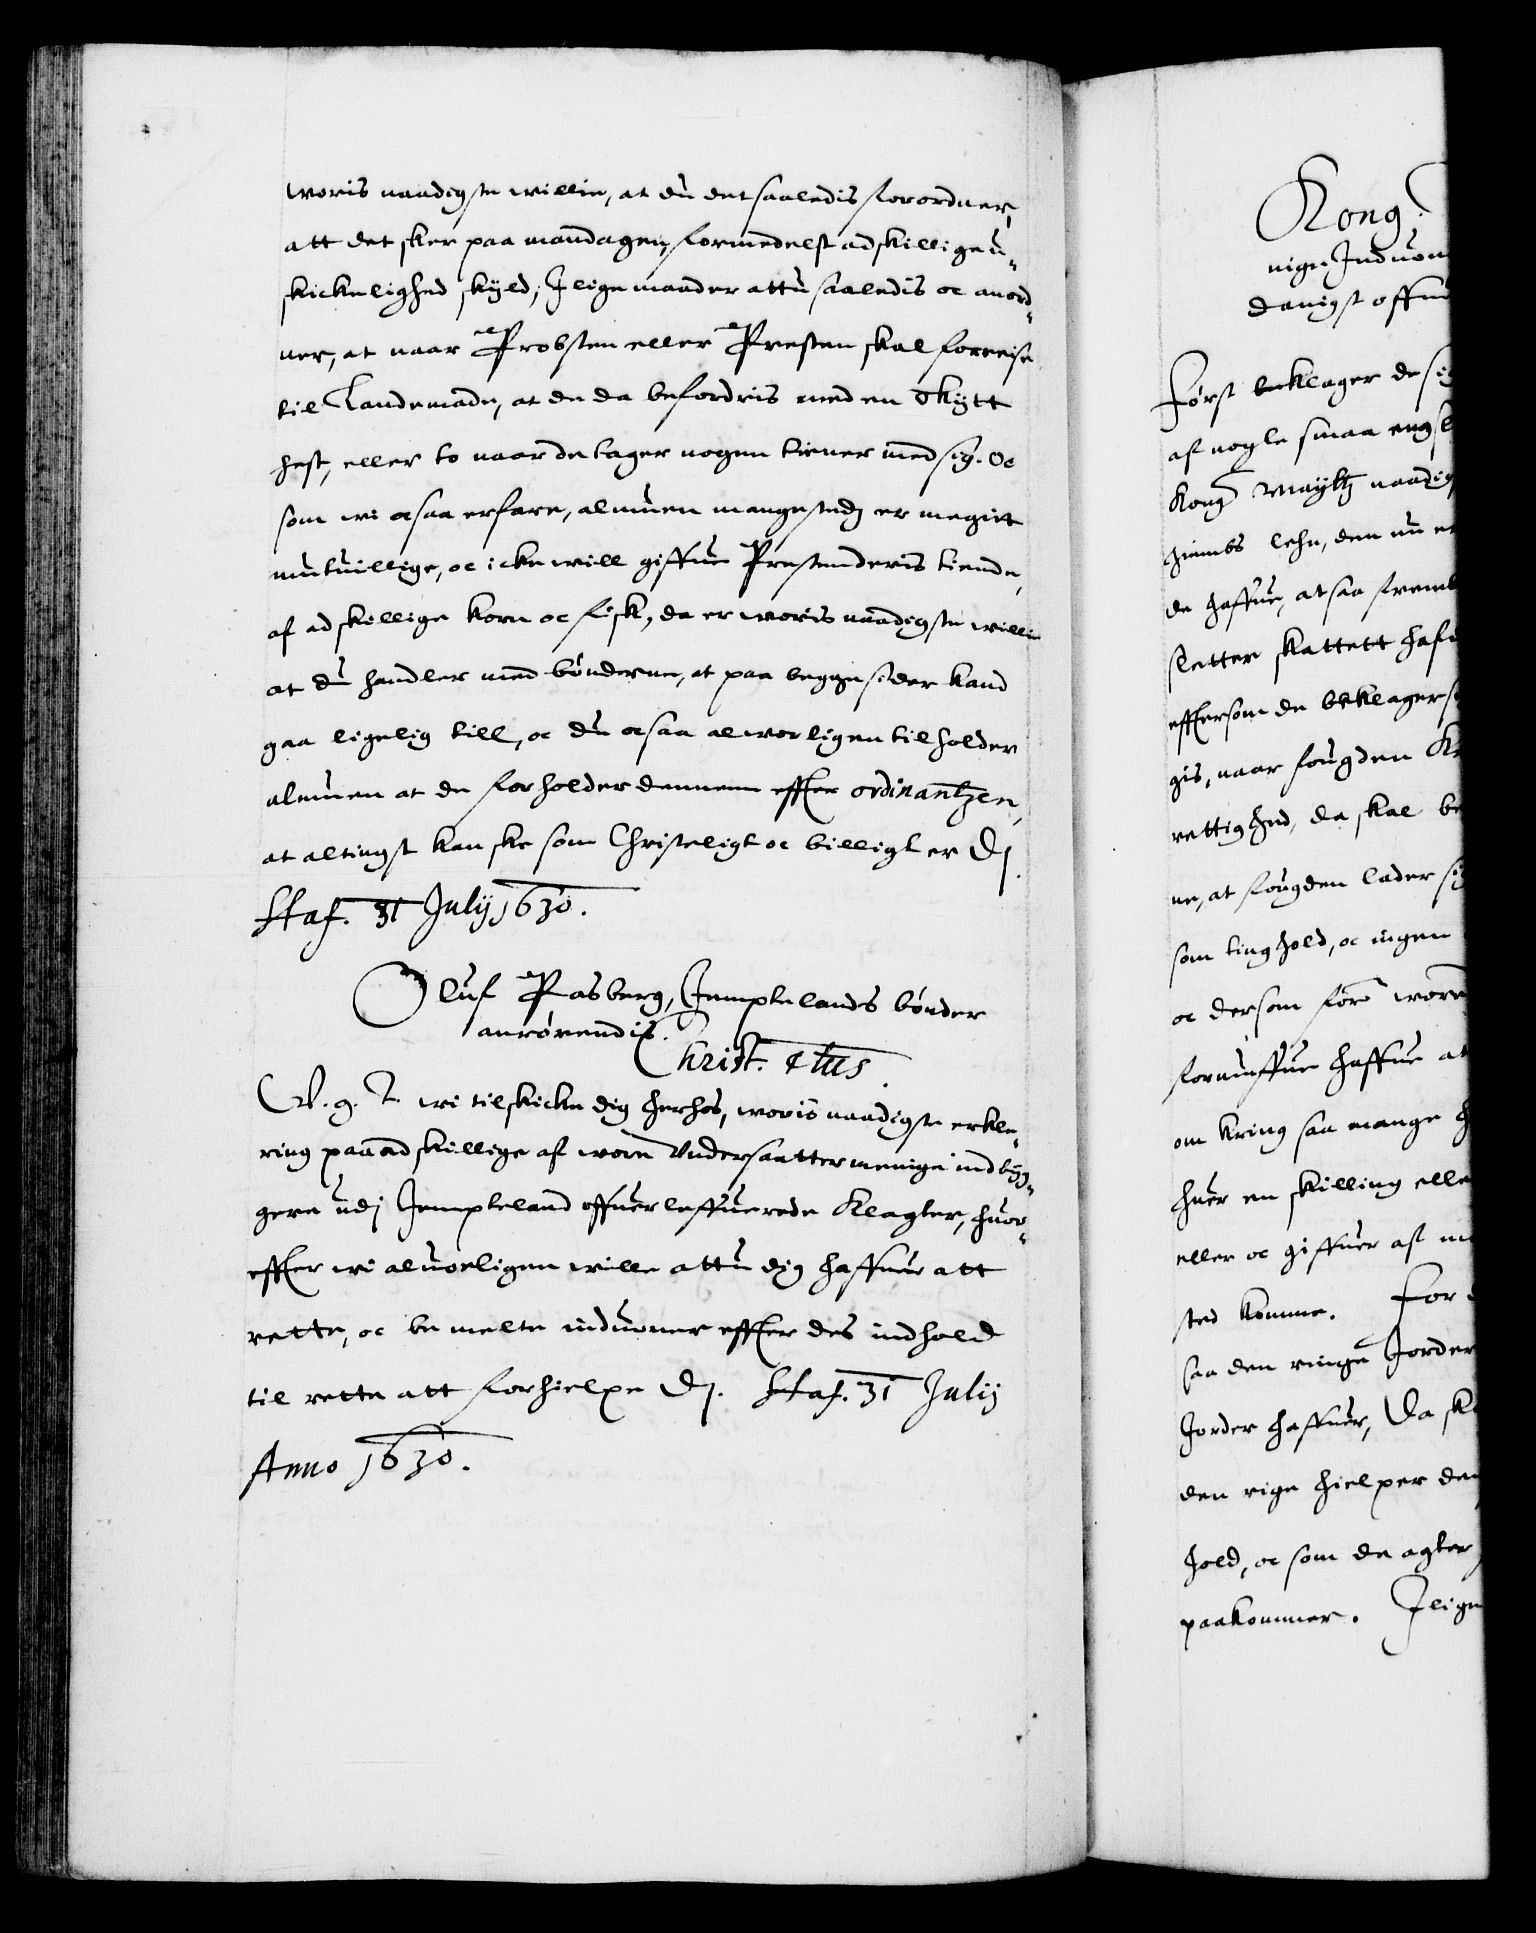 woris naadigste willie, at du det saaledis forordner,
att det sker paa mandagen, formedelst adskillige u-
skickelighed skyld; I lige maader attu saaledis oc anord-
ner, at naar Probsten eller Presten skal forreise
til Landemode, at de da befordris med en Skytt
hest, eller to naar de tager nogen tiener med sig. Oc
som wi ocsaa erfare, almuen mangestedz er megitt
mutuillige, oc icke will giffue Presten deris tiende,
af adskillige korn oc fisk, da er woris naadigste willie
at du handler med bønderne, at paa begge sider kand
gaa ligelig till, oc du ocsaa alworligen tilholder
almuen at de forholder dennem effter ordinantzen,
at altingst kan ske som Christeligt oc billigt er Dj.
Haf. 31 Julij 1630.
Oluf Pasberg, Jempteland bønder
anrørendis.
Christ. 4tus.
W. g. T. wi tilskicke dig herhos, woris naadigste erkle-
ring paa adskillige af wore Vndersaatter menige indbyg-
gere udj Jempteland offuerleffuerede Klagter, huor-
effter wi aluorligen wille attu dig haffuer att
rette, oc be melte induoner effter des indhold
til rette att forhielpe Dj. Haf. 31 Julij
Anno 1630.
Kong.
nige Induon
danigst offu
Først beklager de sig
af nogle smaa eng
Kong Maytz naadig
hiembs lehn, den nu er
de haffue, at saa fremt
Sletter skattett haf
effter som de beklager si
gis, naar fougden
rettighed, da skal be
ne, at fougden lader sig
som ting hold, oc ingen
oc der som før wore
fornuffue haffue at
om kring saa mange
huer en skilling elle
eller oc giffuer af
sted komme. For
saa den ringe Jorder
Jorder haffuer, Da sk
den rige hielper den
hold, oc som de agter
paakommer. I lige